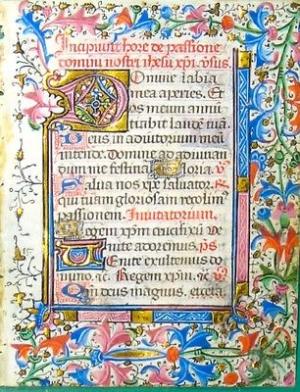 Incipiunt hore de passione
domini nostri ihesu xpi. v̄sus.
Domine labia
mea aperies. Et
os meum annū
tiabit laudē tuā
Deus in adiutorium meū
intende. Domine ad adiuuan
dum me festina Gloria. v
Salua nos xpe saluator.
quam gloriosam recolim
passionem. Inuitatorium.
Regem xpm crucifixū ve
nite adoremus. ps
Venite exultemus do
mino. Regem xpm. v
Qm deus magnus. etcetā.